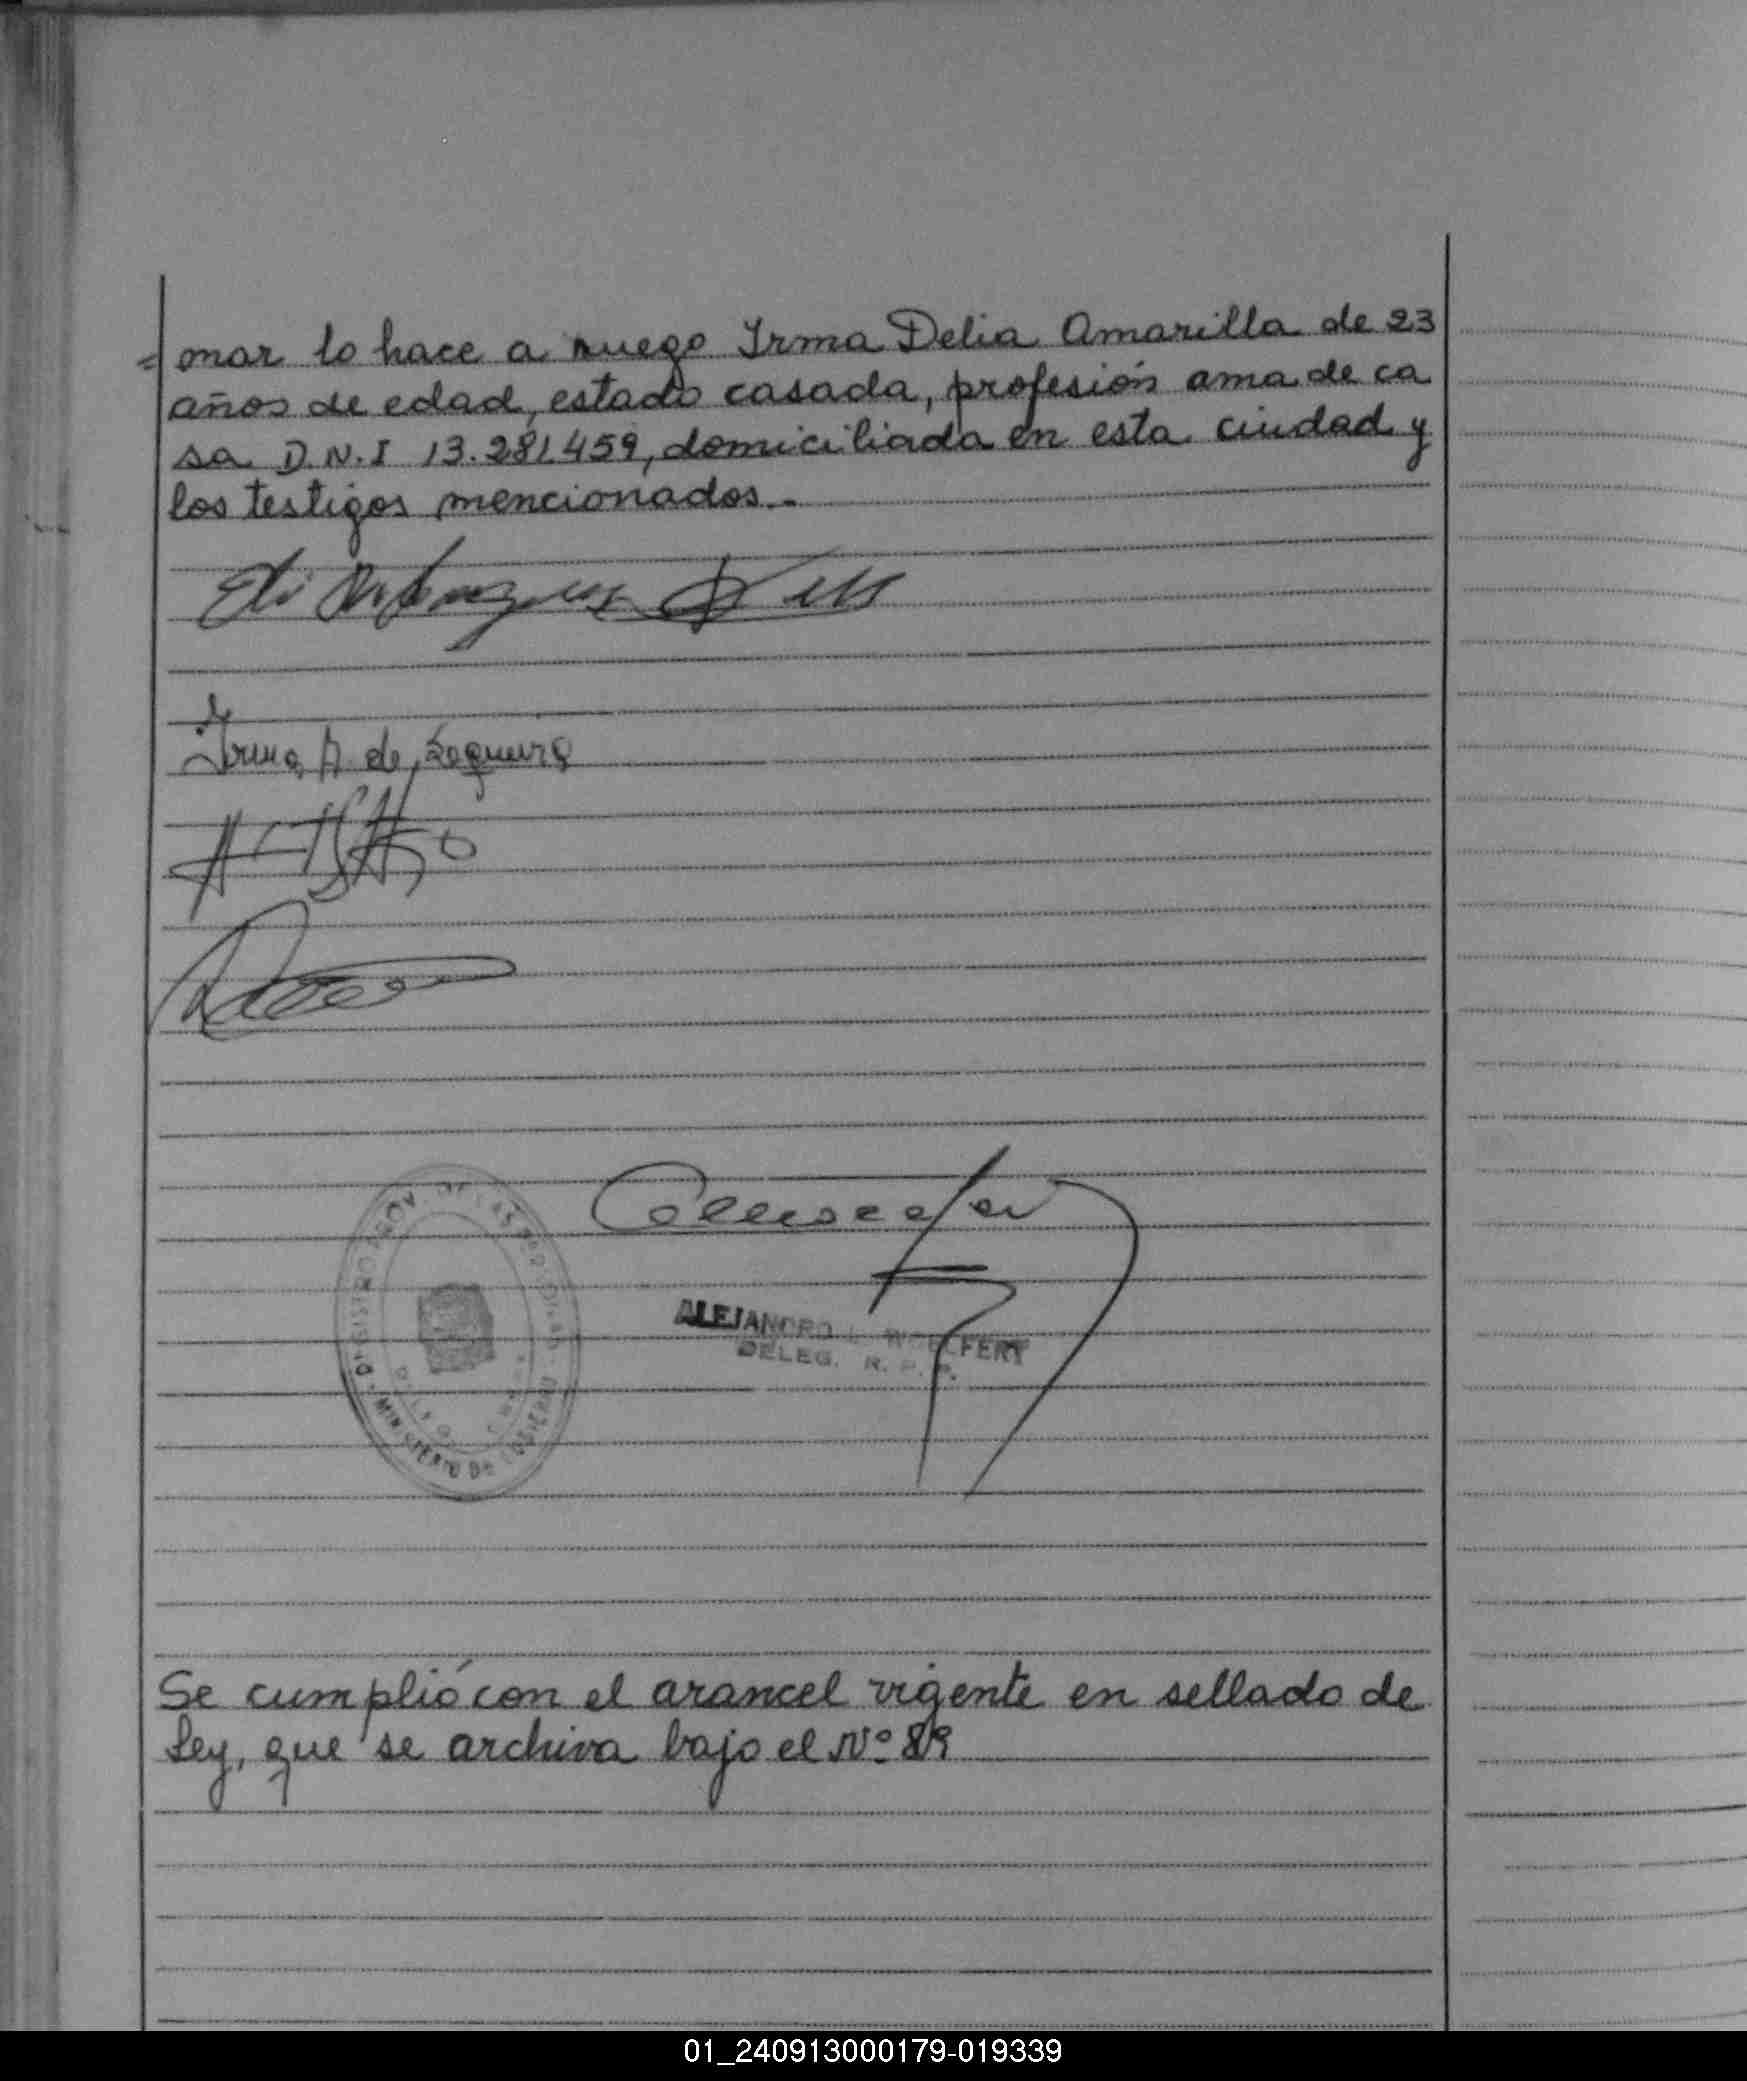 = mar lo hace a ruego Irma Delia Amarilla de 23
años de edad, estado casada, profesión ama de ca
sa D.N.I 13.281.459, domiciliada en esta ciudad y
los testigos mencionados.-
Irma A. de Sequeira
ALEJANDRO L. WOELFERT
DELEG. R. P. P.
MINISTERIO DE GOBIERNO
Se cumplió con el arancel vigente en sellado de
Ley, que se archiva bajo el Nº 89
01_240913000179-019339